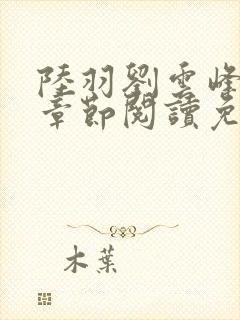 陸羽劉雲峰
章節閱讀免
木葉